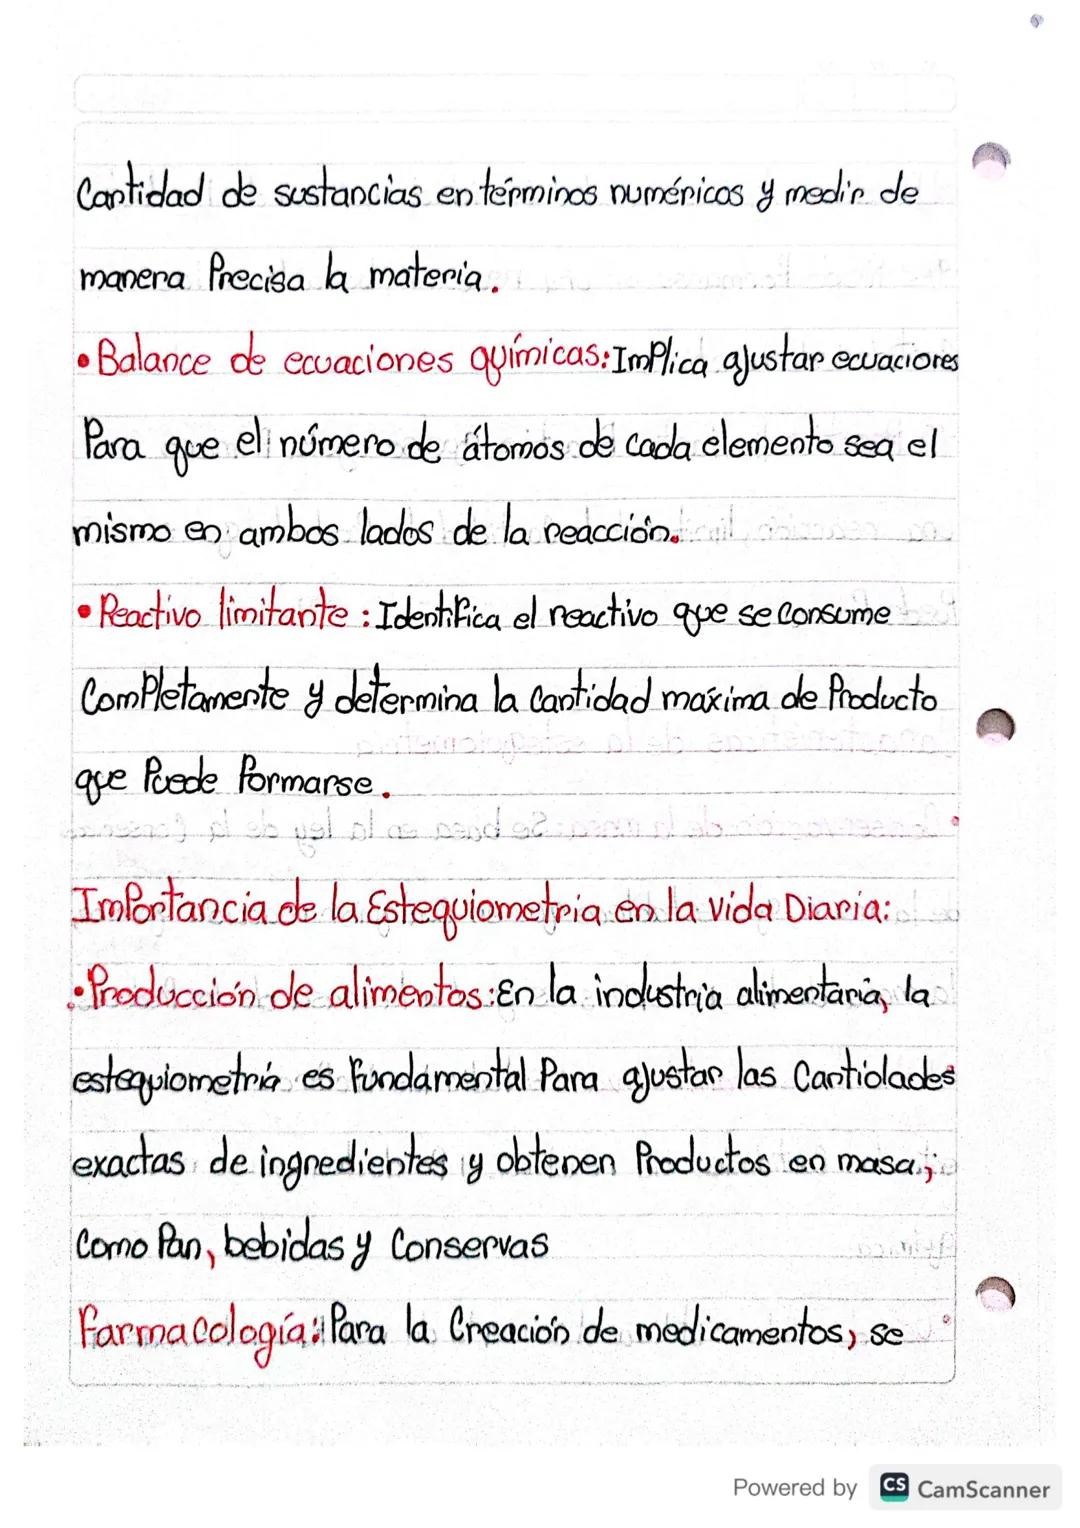 Cantidad de sustancias en términos numéricos y medir de
manera Precisa la materia.
• Balance de ecuaciones químicas: Implica ajustar ecuaciones
Para que el número de átomos de cada elemento sea el
mismo en ambos lados de la reacción.
• Reactivo limitante: Identifica el reactivo que se consume
Completamente y determina la cantidad maxima de Producto
que Puede formarse.
Importancia de la Estequiometria en la vida Diaria:
• Producción de alimentos: En la industria alimentaria, la
estequiometria es fundamental Para ajustar las Cantidades
exactas de ingredientes y obtener Productos en masa,
Como Pan, bebidas y Conservas
farmacología: Para la Creación de medicamentos, se
Powered by CS CamScanner